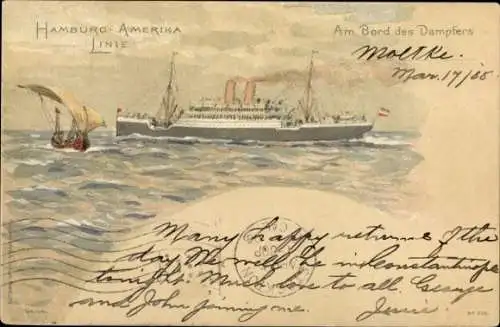 Hamburg-Amerika
Linie
Am Bord des Dampfers
Moltke.
Mar. 17/05
Many happy returns of the
day We will be in Constantinople
tonight. Much love to all. George
and John joining me.
Jennie.